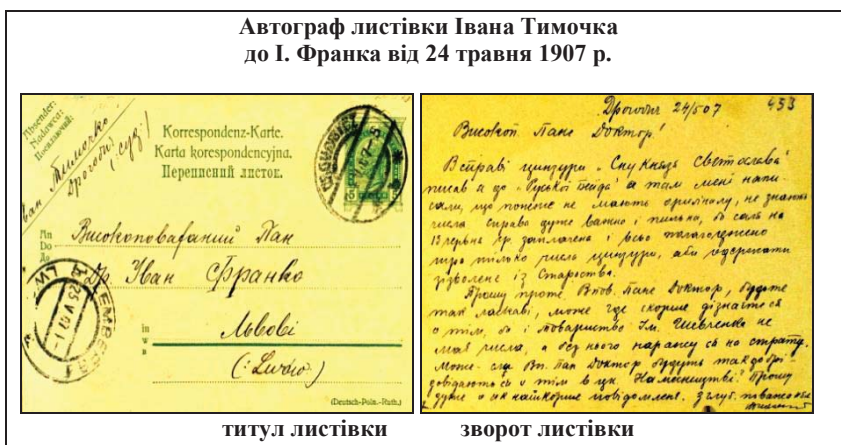 Автограф листівки Івана Тимочка
до І. Франка від 24 травня 1907 р.
Absender:
Nadawca:
Посилаючий:
Іван Тимочко
Дрогобич (:суд:)
Korrespondenz-Karte.
Karta korespondencyjna.
Переписний листок.
An
Do
До
Високоповажаний Пан
Др Іван Франко
in
w
в
Львові
(: Lwów)
(Deutsch-Poln.-Ruth.)
LEMBERG 1
LWÓW
25 V 07
Дрогобич 24/5 07 453
Високоп. Пане Доктор!
В справі цинзури „Сну Князя Светослава"
писав я до „Руської Бесіди" а там мені напи-
сали, що понеже не мають оригіналу, не знають
числа справа дуже важна і пильна, бо саля на
13 червня с.р. заплачена і всьо полагоджено
тілько число цинзури, аби одержати
зізволенє із Староства.
Прошу проте Впов. Пане Доктор, будьте
так ласкаві, може где скорше дізнаєтеся
о тім, бо і Товариство Ім. Шевченка не
має числа, а без нього наражу ся на страту.
Може Вп. Пан Доктор будуть так добрі
довідають ся о тім в цк. Намісництві? Прошу
дуже о як найскорше повідомленя. З глуб. поважанєм
титул листівки зворот листівки